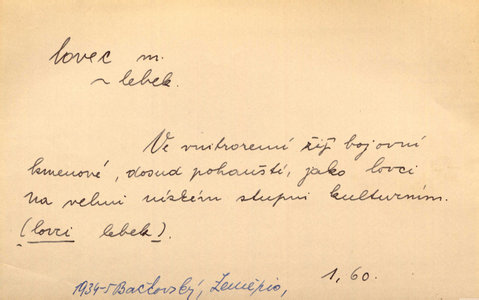 lovec m.
~ lebek.
Ve vnitrozemí žijí bojovní
kmenové, dosud pohanští, jako lovci
na velmi nízkém stupni kulturním.
(lovci lebek).
1, 60.
1934-5